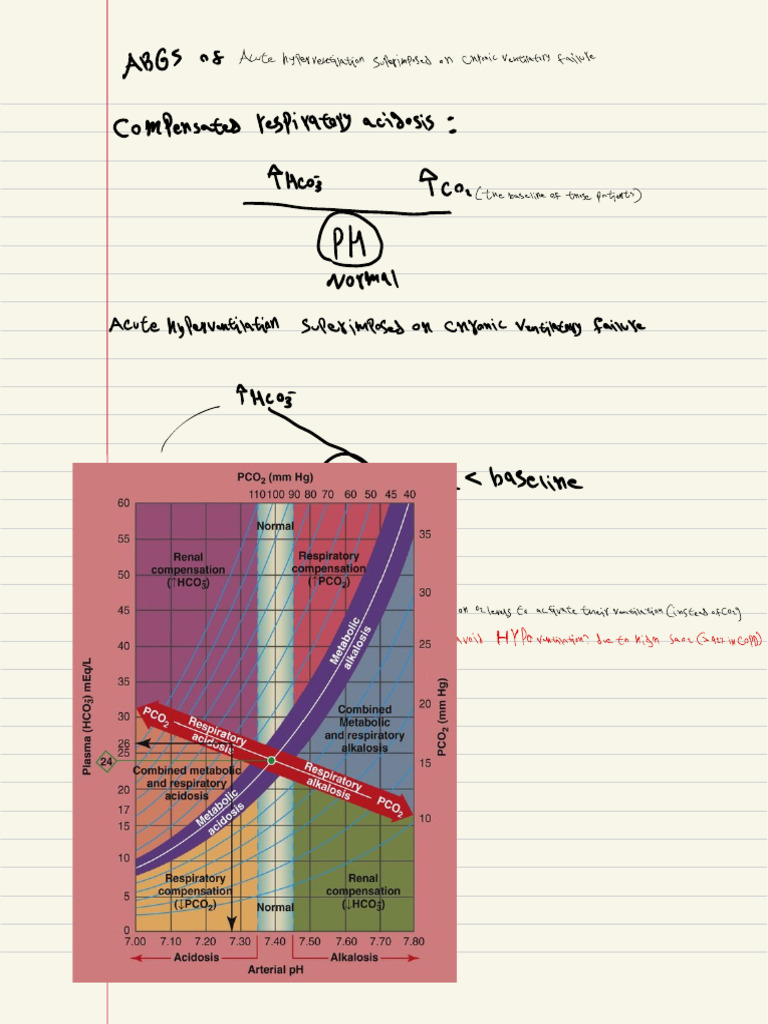 ABGS of Acute hyperventilation superimposed on chronic ventilatory failure
Compensated respiratory acidosis :
↑HCO3⁻
↑CO2 (the baseline of these patients)
PH
Normal
Acute hyperventilation superimposed on chronic ventilatory failure
↑HCO3⁻
< baseline
on O2 levels to activate their ventilation (instead of CO2)
avoid HYPO ventilation? due to high SaO2 (>92% in COPD)
PCO₂ (mm Hg)
110 100 90 80 70 60 50 45 40
60
55
50
45
40
35
30
26
25
24
20
17
15
10
5
0
Plasma (HCO₃⁻) mEq/L
Normal
Renal
compensation
(↑HCO₃⁻)
Respiratory
compensation
(↑PCO₂)
Metabolic
alkalosis
PCO₂
Respiratory
acidosis
Combined
Metabolic
and respiratory
alkalosis
Combined metabolic
and respiratory
acidosis
Respiratory
alkalosis
PCO₂
Metabolic
acidosis
Respiratory
compensation
(↓PCO₂)
Normal
Renal
compensation
(↓HCO₃⁻)
35
30
25
20
15
10
PCO₂ (mm Hg)
7.00 7.10 7.20 7.30 7.40 7.50 7.60 7.70 7.80
Acidosis
Alkalosis
Arterial pH